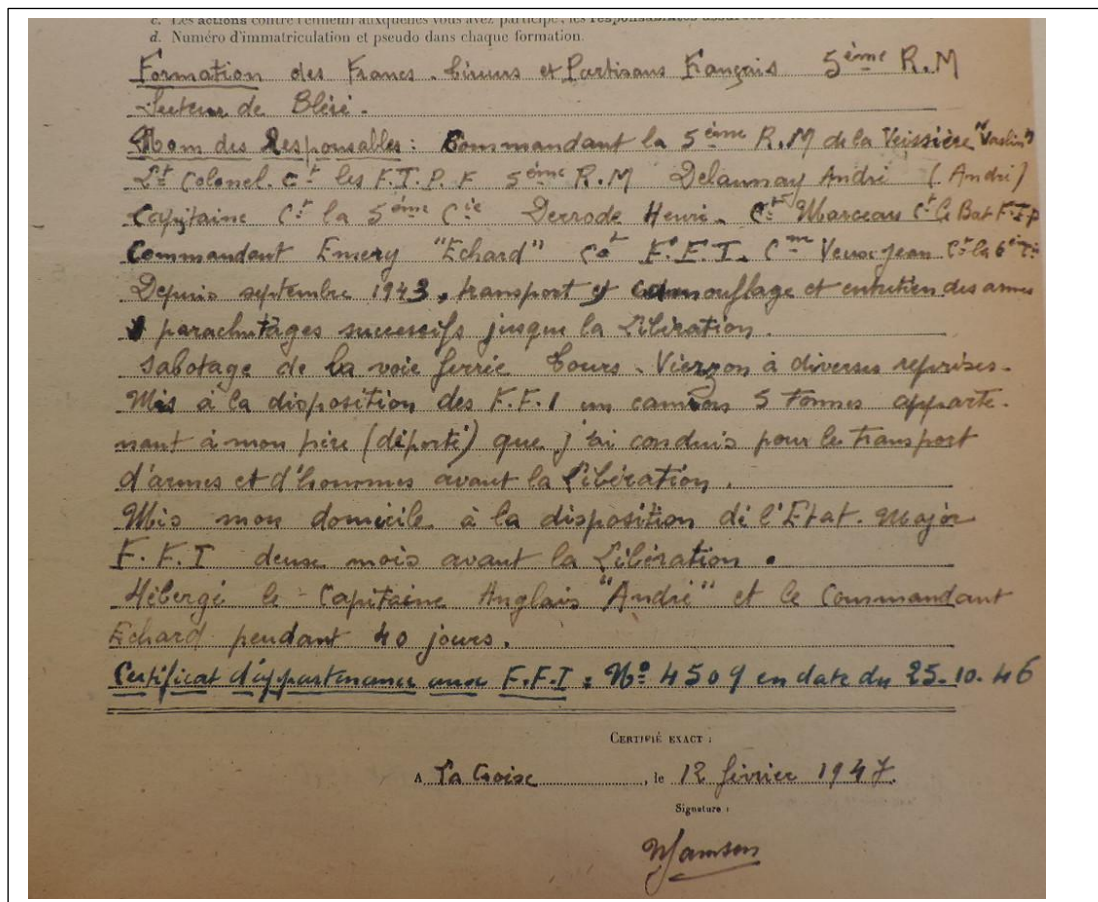 c. Les actions contre l'ennemi auxquelles vous avez participé, les responsabilités assurées
d. Numéro d'immatriculation et pseudo dans chaque formation.
Formation des Francs-Tireurs et Partisans Français 5ème R.M
Secteur de Bléré.
Nom des Responsables : Commandant la 5ème R.M de la Veissière "Vaslin"
Lt Colonel. Ct les F.T.P.F 5ème R.M Delaunay André (André)
Capitaine Ct la 5ème Cie Derrode Henri. Ct Marceau Ct le Bat F.T.P
Commandant Emery "Echard" Ct F.F.I. Jean Ct la 6e
Depuis septembre 1943, transport et camouflage et entretien des armes
parachutages successifs jusque la Libération.
Sabotage de la voie ferrée Tours - Vierzon à diverses reprises.
Mis à la disposition des F.F.I un camion 5 Tonnes apparte-
nant à mon père (déporté) que j'ai conduis pour le transport
d'armes et d'hommes avant la Libération.
Mis mon domicile à la disposition de l'Etat-Major
F.F.I deux mois avant la Libération.
Hébergé le Capitaine Anglais "André" et le Commandant
Echard pendant 40 jours.
Certificat d'appartenance aux F.F.I : No 4509 en date du 25.10.46
CERTIFIÉ EXACT :
A La Croix, le 12 février 1947.
Signature :